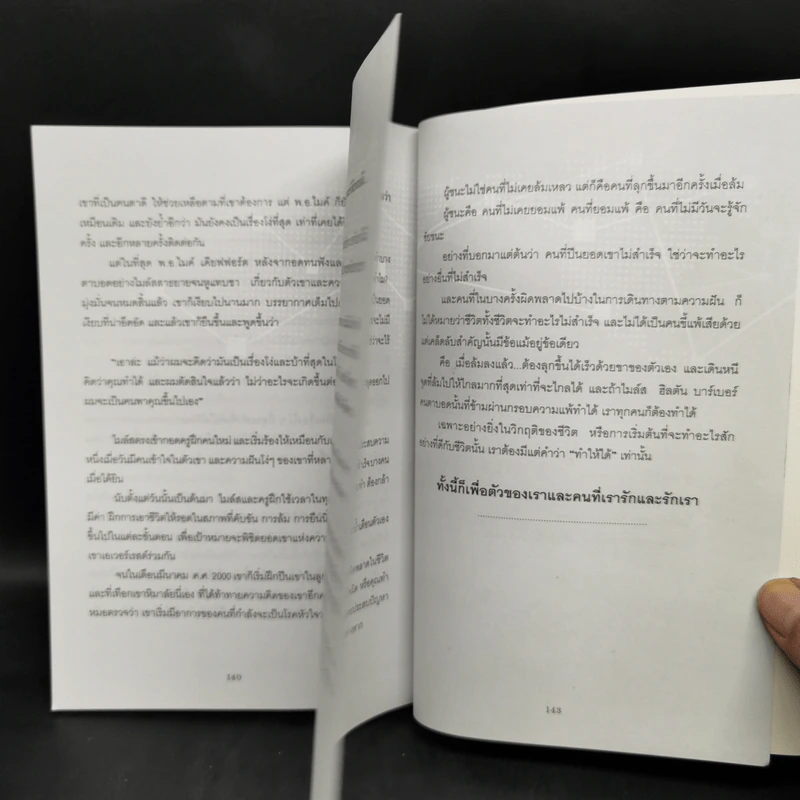 เขาที่เป็นคนตาดี ให้ช่วยเหลือตามที่เขาต้องการ แต่ พ.อ.ไมค์
เหมือนเดิม และยังย้ำอีกว่า มันยังคงเป็นเรื่องโง่ที่สุด เท่าที่เคยได้
ครั้ง และอีกหลายครั้งติดต่อกัน
แต่ในที่สุด พ.อ.ไมค์ เคียฟฟอร์ด หลังจากอดทนฟังและ
ตาบอดอย่างไมล์สสาธยายจนหูแทบชา เกี่ยวกับตัวเขาและความ
มุ่งมั่นจนหมดสิ้นแล้ว เขาก็เงียบไปนานมาก บรรยากาศเต็มไป
เงียบที่น่าอึดอัด และแล้วเขาก็ยืนขึ้นและพูดขึ้นว่า
"เอาล่ะ แม้ว่าผมจะคิดว่ามันเป็นเรื่องโง่และบ้าที่สุดใน
คิดว่าคุณทำได้ และผมตัดสินใจแล้วว่า ไม่ว่าอะไรจะเกิดขึ้นต่อ
ผมจะเป็นคนพาคุณขึ้นไปเอง"
ไมล์สตรงเข้ากอดครูฝึกคนใหม่ และเริ่มร้องไห้เหมือนกับ
หนึ่งเมื่อวันมีคนเข้าใจในตัวเขา และความฝันโง่ๆ ของเขาที่หลาย
เมื่อได้ยิน
นับตั้งแต่วันนั้นเป็นต้นมา ไมล์สและครูฝึกใช้เวลาในทุก
มีค่า ฝึกการเอาชีวิตให้รอดในสภาพที่คับขัน การล้ม การยืนนิ่ง
ขึ้นไปในแต่ละขั้นตอน เพื่อเป้าหมายจะพิชิตยอดเขาแห่งความ
เขาเอเวอร์เรสต์ร่วมกัน
จนในเดือนมีนาคม ค.ศ. 2000 เขาก็เริ่มฝึกปีนเขาในลูก
และที่เทือกเขาหิมาลัยนี่เอง ที่ได้ท้าทายความคิดของเขาอีก
หมอตรวจว่า เขาเริ่มมีอาการของคนที่กำลังจะเป็นโรคหัวใจ
140
ผู้ชนะไม่ใช่คนที่ไม่เคยล้มเหลว แต่ก็คือคนที่ลุกขึ้นมาอีกครั้งเมื่อล้ม
ผู้ชนะคือ คนที่ไม่เคยยอมแพ้ คนที่ยอมแพ้ คือ คนที่ไม่มีวันจะรู้จัก
ชัยชนะ
อย่างที่บอกมาแต่ต้นว่า คนที่ปีนยอดเขาไม่สำเร็จ ใช่ว่าจะทำอะไร
อย่างอื่นที่ไม่สำเร็จ
และคนที่ในบางครั้งผิดพลาดไปบ้างในการเดินทางตามความฝัน ก็
ไม่ได้หมายว่าชีวิตทั้งชีวิตจะทำอะไรไม่สำเร็จ และไม่ได้เป็นคนขี้แพ้เสียด้วย
แต่เคล็ดลับสำคัญนั้นมีข้อแม้อยู่ข้อเดียว
คือ เมื่อล้มลงแล้ว...ต้องลุกขึ้นได้เร็วด้วยขาของตัวเอง และเดินหนี
จุดที่ล้มไปให้ไกลมากที่สุดเท่าที่จะไกลได้ และถ้าไมล์ส ฮิลตัน บาร์เบอร์
คนตาบอดนั้นที่ข้ามผ่านกรอบความแพ้ทำได้ เราทุกคนก็ต้องทำได้
เฉพาะอย่างยิ่งในวิกฤติของชีวิต หรือการเริ่มต้นที่จะทำอะไรสัก
อย่างที่ดีกับชีวิตนั้น เราต้องมีแต่คำว่า "ทำให้ได้" เท่านั้น
ทั้งนี้ก็เพื่อตัวของเราและคนที่เรารักและรักเรา
143